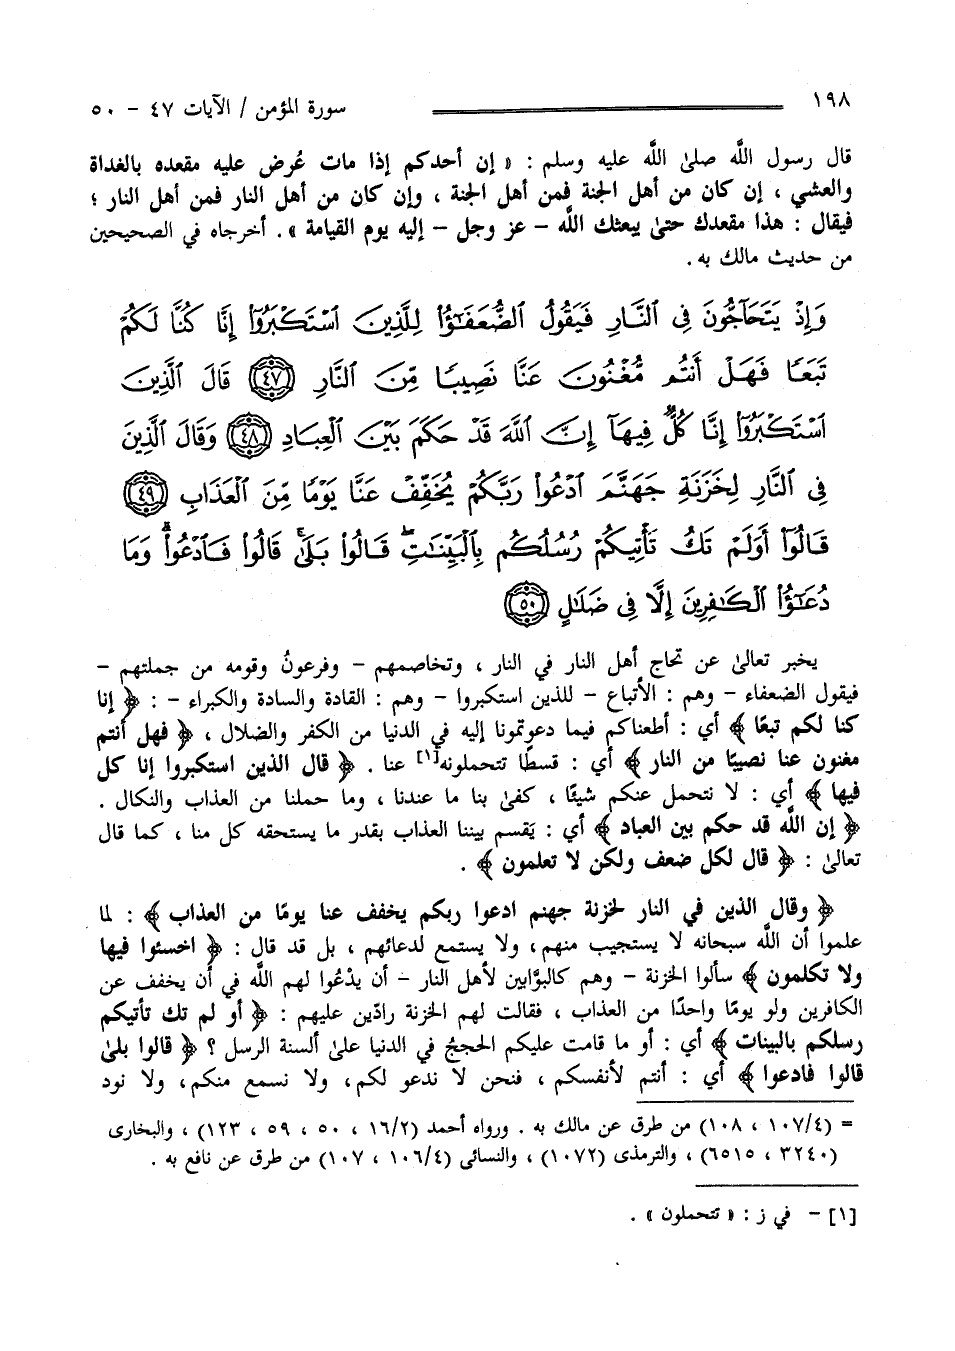 ١٩٨ سورة المؤمن / الآيات ٤٧ - ٥٠
قال رسول اللَّه صلى اللَّه عليه وسلم : « إن أحدكم إذا مات عُرض عليه مقعده بالغداة
والعشي ، إن كان من أهل الجنة فمن أهل الجنة ، وإن كان من أهل النار فمن أهل النار ؛
فيقال : هذا مقعدك حتىٰ يبعثك اللَّه - عز وجل - إليه يوم القيامة » . أخرجاه في الصحيحين
من حديث مالك به .
وَإِذْ يَتَحَآجُّونَ فِى ٱلنَّارِ فَيَقُولُ ٱلضُّعَفَـٰٓؤُا۟ لِلَّذِينَ ٱسْتَكْبَرُوٓا۟ إِنَّا كُنَّا لَكُمْ
تَبَعًا فَهَلْ أَنتُم مُّغْنُونَ عَنَّا نَصِيبًا مِّنَ ٱلنَّارِ ٤٧ قَالَ ٱلَّذِينَ
ٱسْتَكْبَرُوٓا۟ إِنَّا كُلٌّ فِيهَآ إِنَّ ٱللَّهَ قَدْ حَكَمَ بَيْنَ ٱلْعِبَادِ ٤٨ وَقَالَ ٱلَّذِينَ
فِى ٱلنَّارِ لِخَزَنَةِ جَهَنَّمَ ٱدْعُوا۟ رَبَّكُمْ يُخَفِّفْ عَنَّا يَوْمًا مِّنَ ٱلْعَذَابِ ٤٩
قَالُوٓا۟ أَوَلَمْ تَكُ تَأْتِيكُمْ رُسُلُكُم بِٱلْبَيِّنَـٰتِ ۖ قَالُوا۟ بَلَىٰ ۚ قَالُوا۟ فَٱدْعُوا۟ ۗ وَمَا
دُعَـٰٓؤُا۟ ٱلْكَـٰفِرِينَ إِلَّا فِى ضَلَـٰلٍ ٥٠
يخبر تعالىٰ عن تحاج أهل النار في النار ، وتخاصمهم - وفرعونُ وقومه من جملتهم -
فيقول الضعفاء - وهم : الأتباع - للذين استكبروا - وهم : القادة والسادة والكبراء - : ﴿ إنا
كنا لكم تبعًا ﴾ أي : أطعناكم فيما دعوتمونا إليه في الدنيا من الكفر والضلال ، ﴿ فهل أنتم
مغنون عنا نصيبًا من النار ﴾ أي : قسطًا تتحملونه[١] عنا . ﴿ قال الذين استكبروا إنا كل
فيها ﴾ أي : لا نتحمل عنكم شيئًا ، كفىٰ بنا ما عندنا ، وما حملنا من العذاب والنكال .
﴿ إن اللَّه قد حكم بين العباد ﴾ أي : يَقسم بيننا العذاب بقدر ما يستحقه كل منا ، كما قال
تعالىٰ : ﴿ قال لكل ضعف ولكن لا تعلمون ﴾ .
﴿ وقال الذين في النار لخزنة جهنم ادعوا ربكم يخفف عنا يومًا من العذاب ﴾ : لما
علموا أن اللَّه سبحانه لا يستجيب منهم ، ولا يستمع لدعائهم ، بل قد قال : ﴿ اخسئوا فيها
ولا تكلمون ﴾ سألوا الخزنة - وهم كالبوَّابين لأهل النار - أن يدْعُوا لهم اللَّه في أن يخفف عن
الكافرين ولو يومًا واحدًا من العذاب ، فقالت لهم الخزنة رادّين عليهم : ﴿ أو لم تك تأتيكم
رسلكم بالبينات ﴾ أي : أو ما قامت عليكم الحججُ في الدنيا علىٰ ألسنة الرسل ؟ ﴿ قالوا بلىٰ
قالوا فادعوا ﴾ أي : أنتم لأنفسكم ، فنحن لا ندعو لكم ، ولا نسمع منكم ، ولا نود
= (١٠٧/٤ ، ١٠٨) من طرق عن مالك به . ورواه أحمد (١٦/٢ ، ٥٠ ، ٥٩ ، ١٢٣) ، والبخارى
(٣٢٤٠ ، ٦٥١٥) ، والترمذى (١٠٧٢) ، والنسائى (١٠٦/٤ ، ١٠٧) من طرق عن نافع به .
[١] - في ز : « تتحملون » .